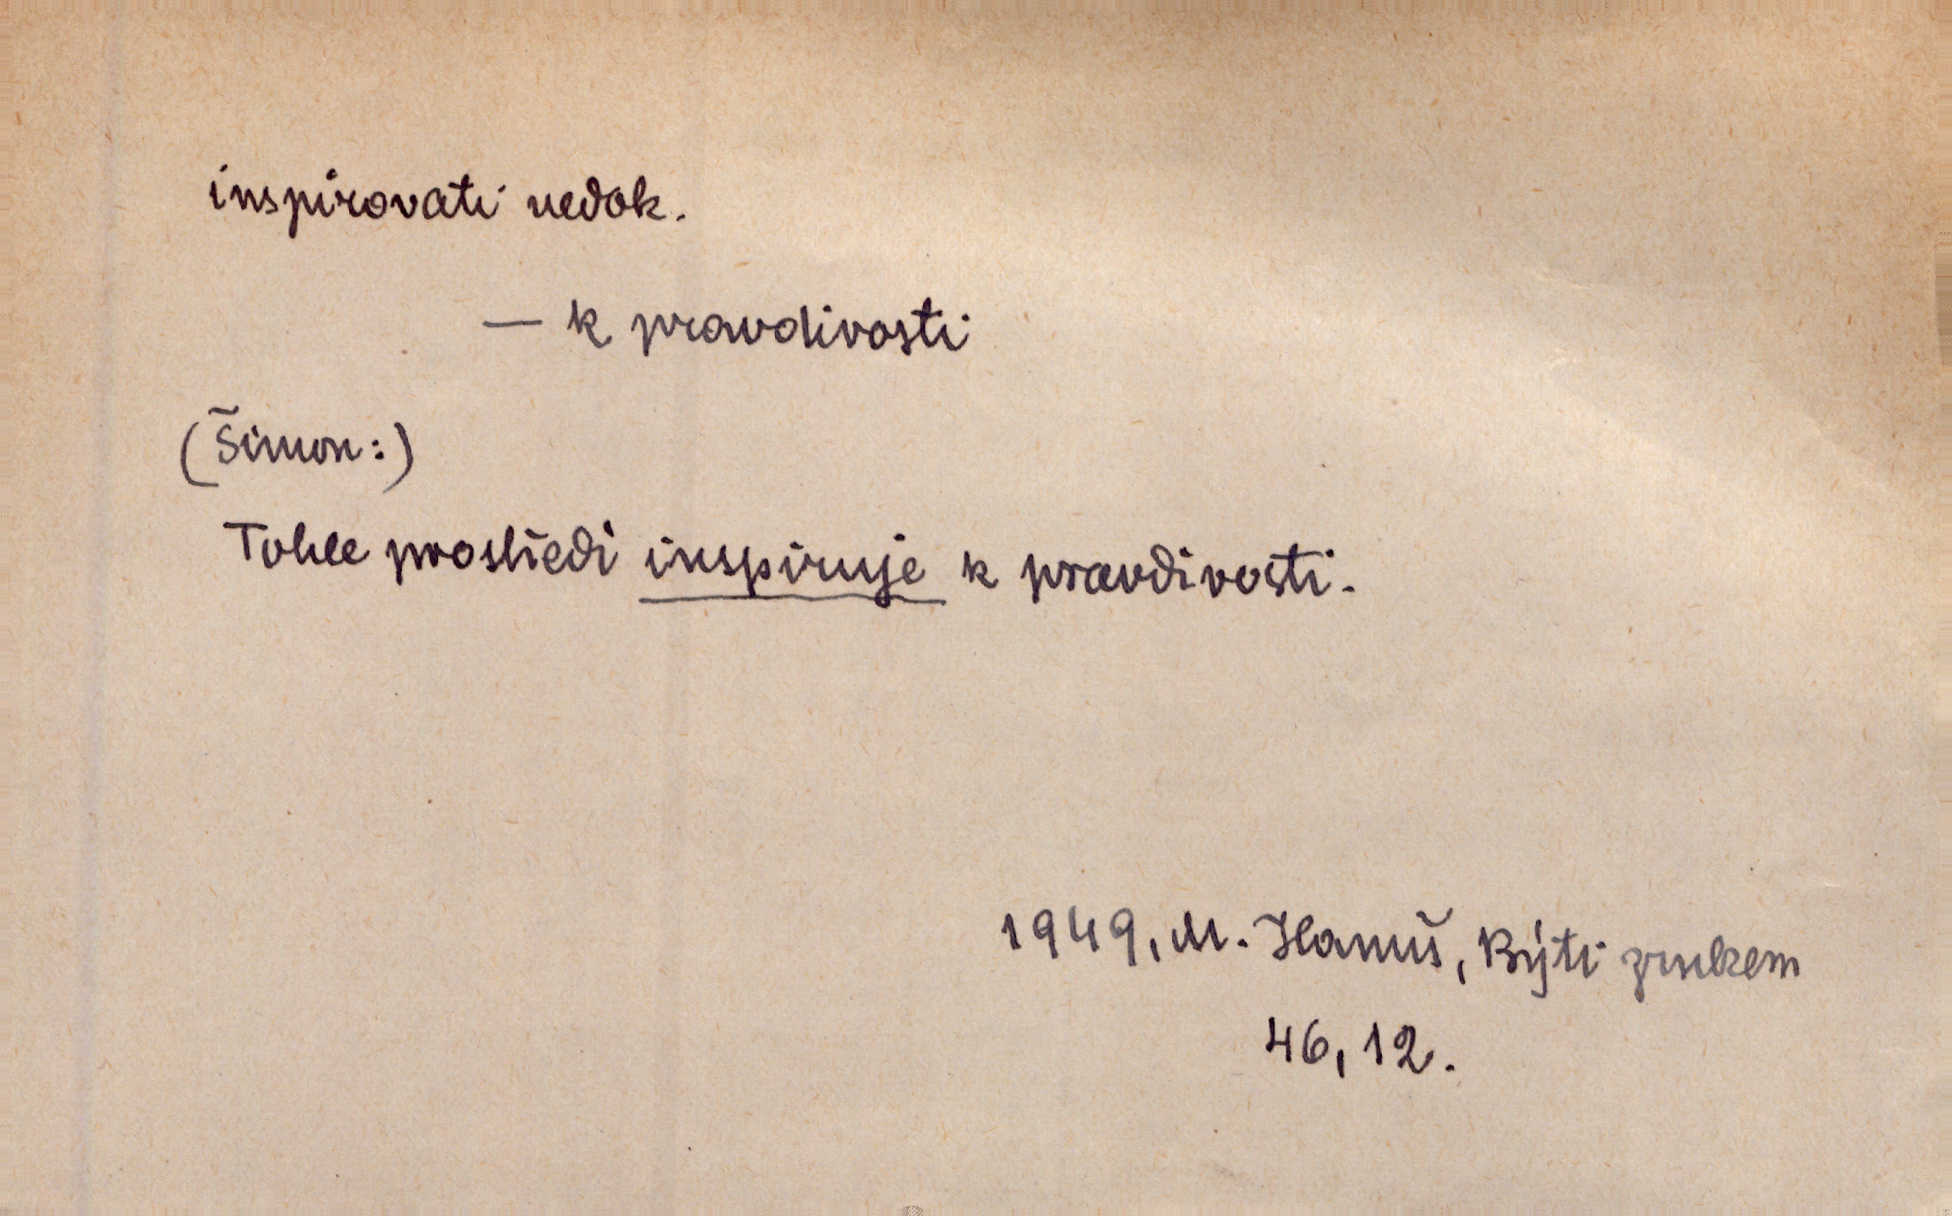 inspirovati nedok.
— k pravdivosti
(Šimon:)
Tohle prostředí inspiruje k pravdivosti.
1949, M. Hanuš, Býti zvukem
46, 12.